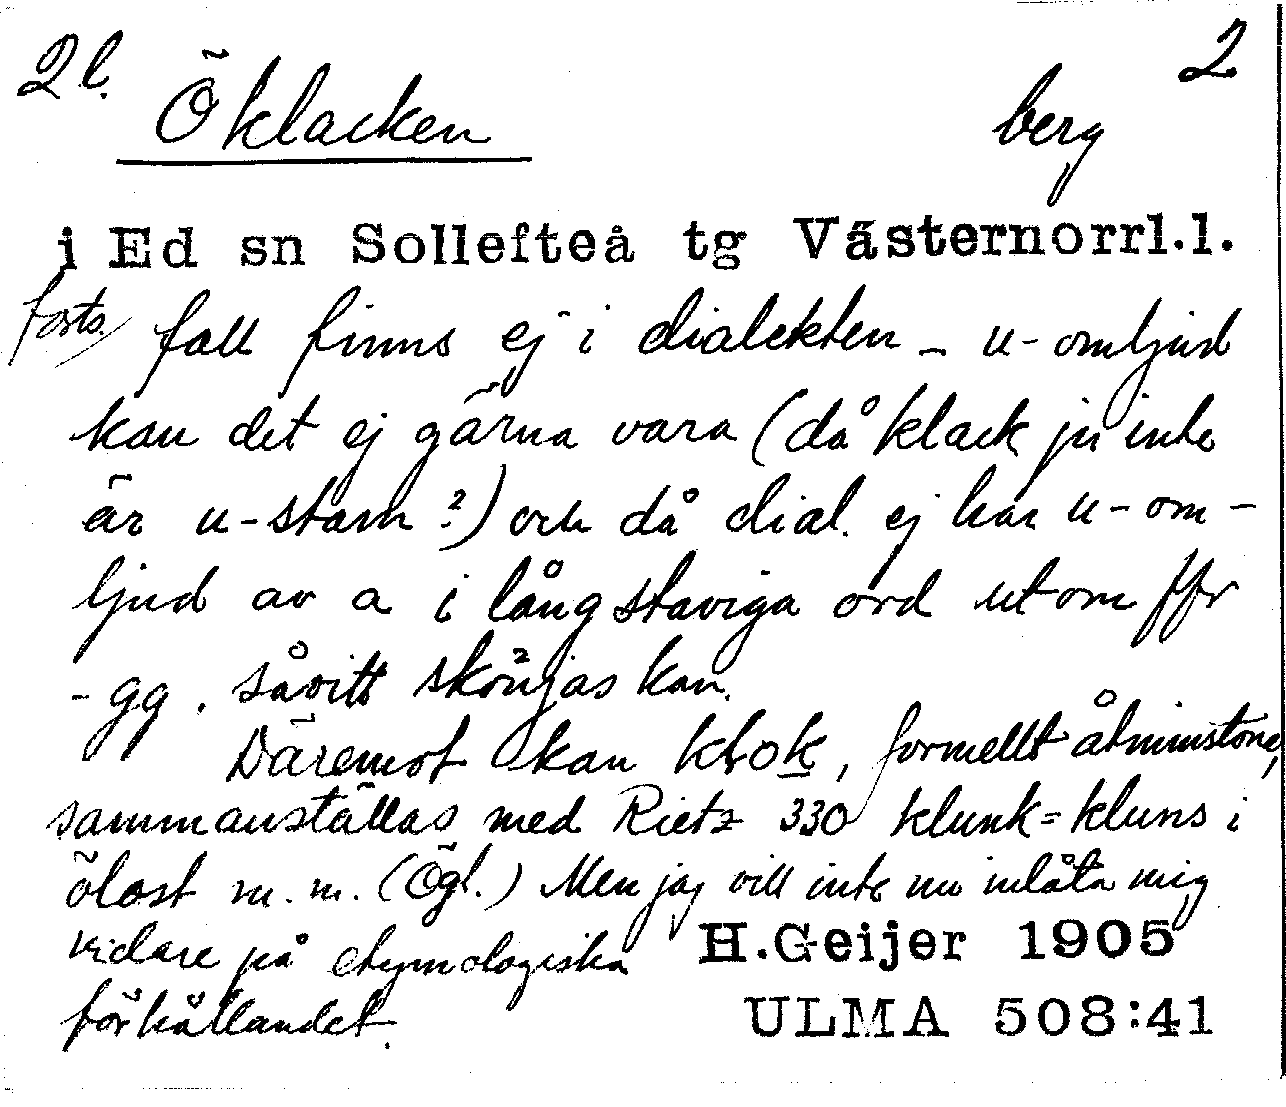 2 l. Öklacken berg 2
i Ed sn Sollefteå tg Västernorrl.l.
forts. fall finns ej i dialekten – u-omljud
kan det ej gärna vara (då klack ju inte
är u-stam?) och då dial. ej har u-om-
ljud av a i långstaviga ord utom ffr
-gg. såvitt skönjas kan.
Däremot kan klok, formellt åtminstone,
sammanställas med Rietz 330 klunk = kluns i
ölost m.m. (Ögl.) Men jag vill inte nu inlåta mig
vidare på etymologiska H.Geijer 1905
förhållandet. ULMA 508:41